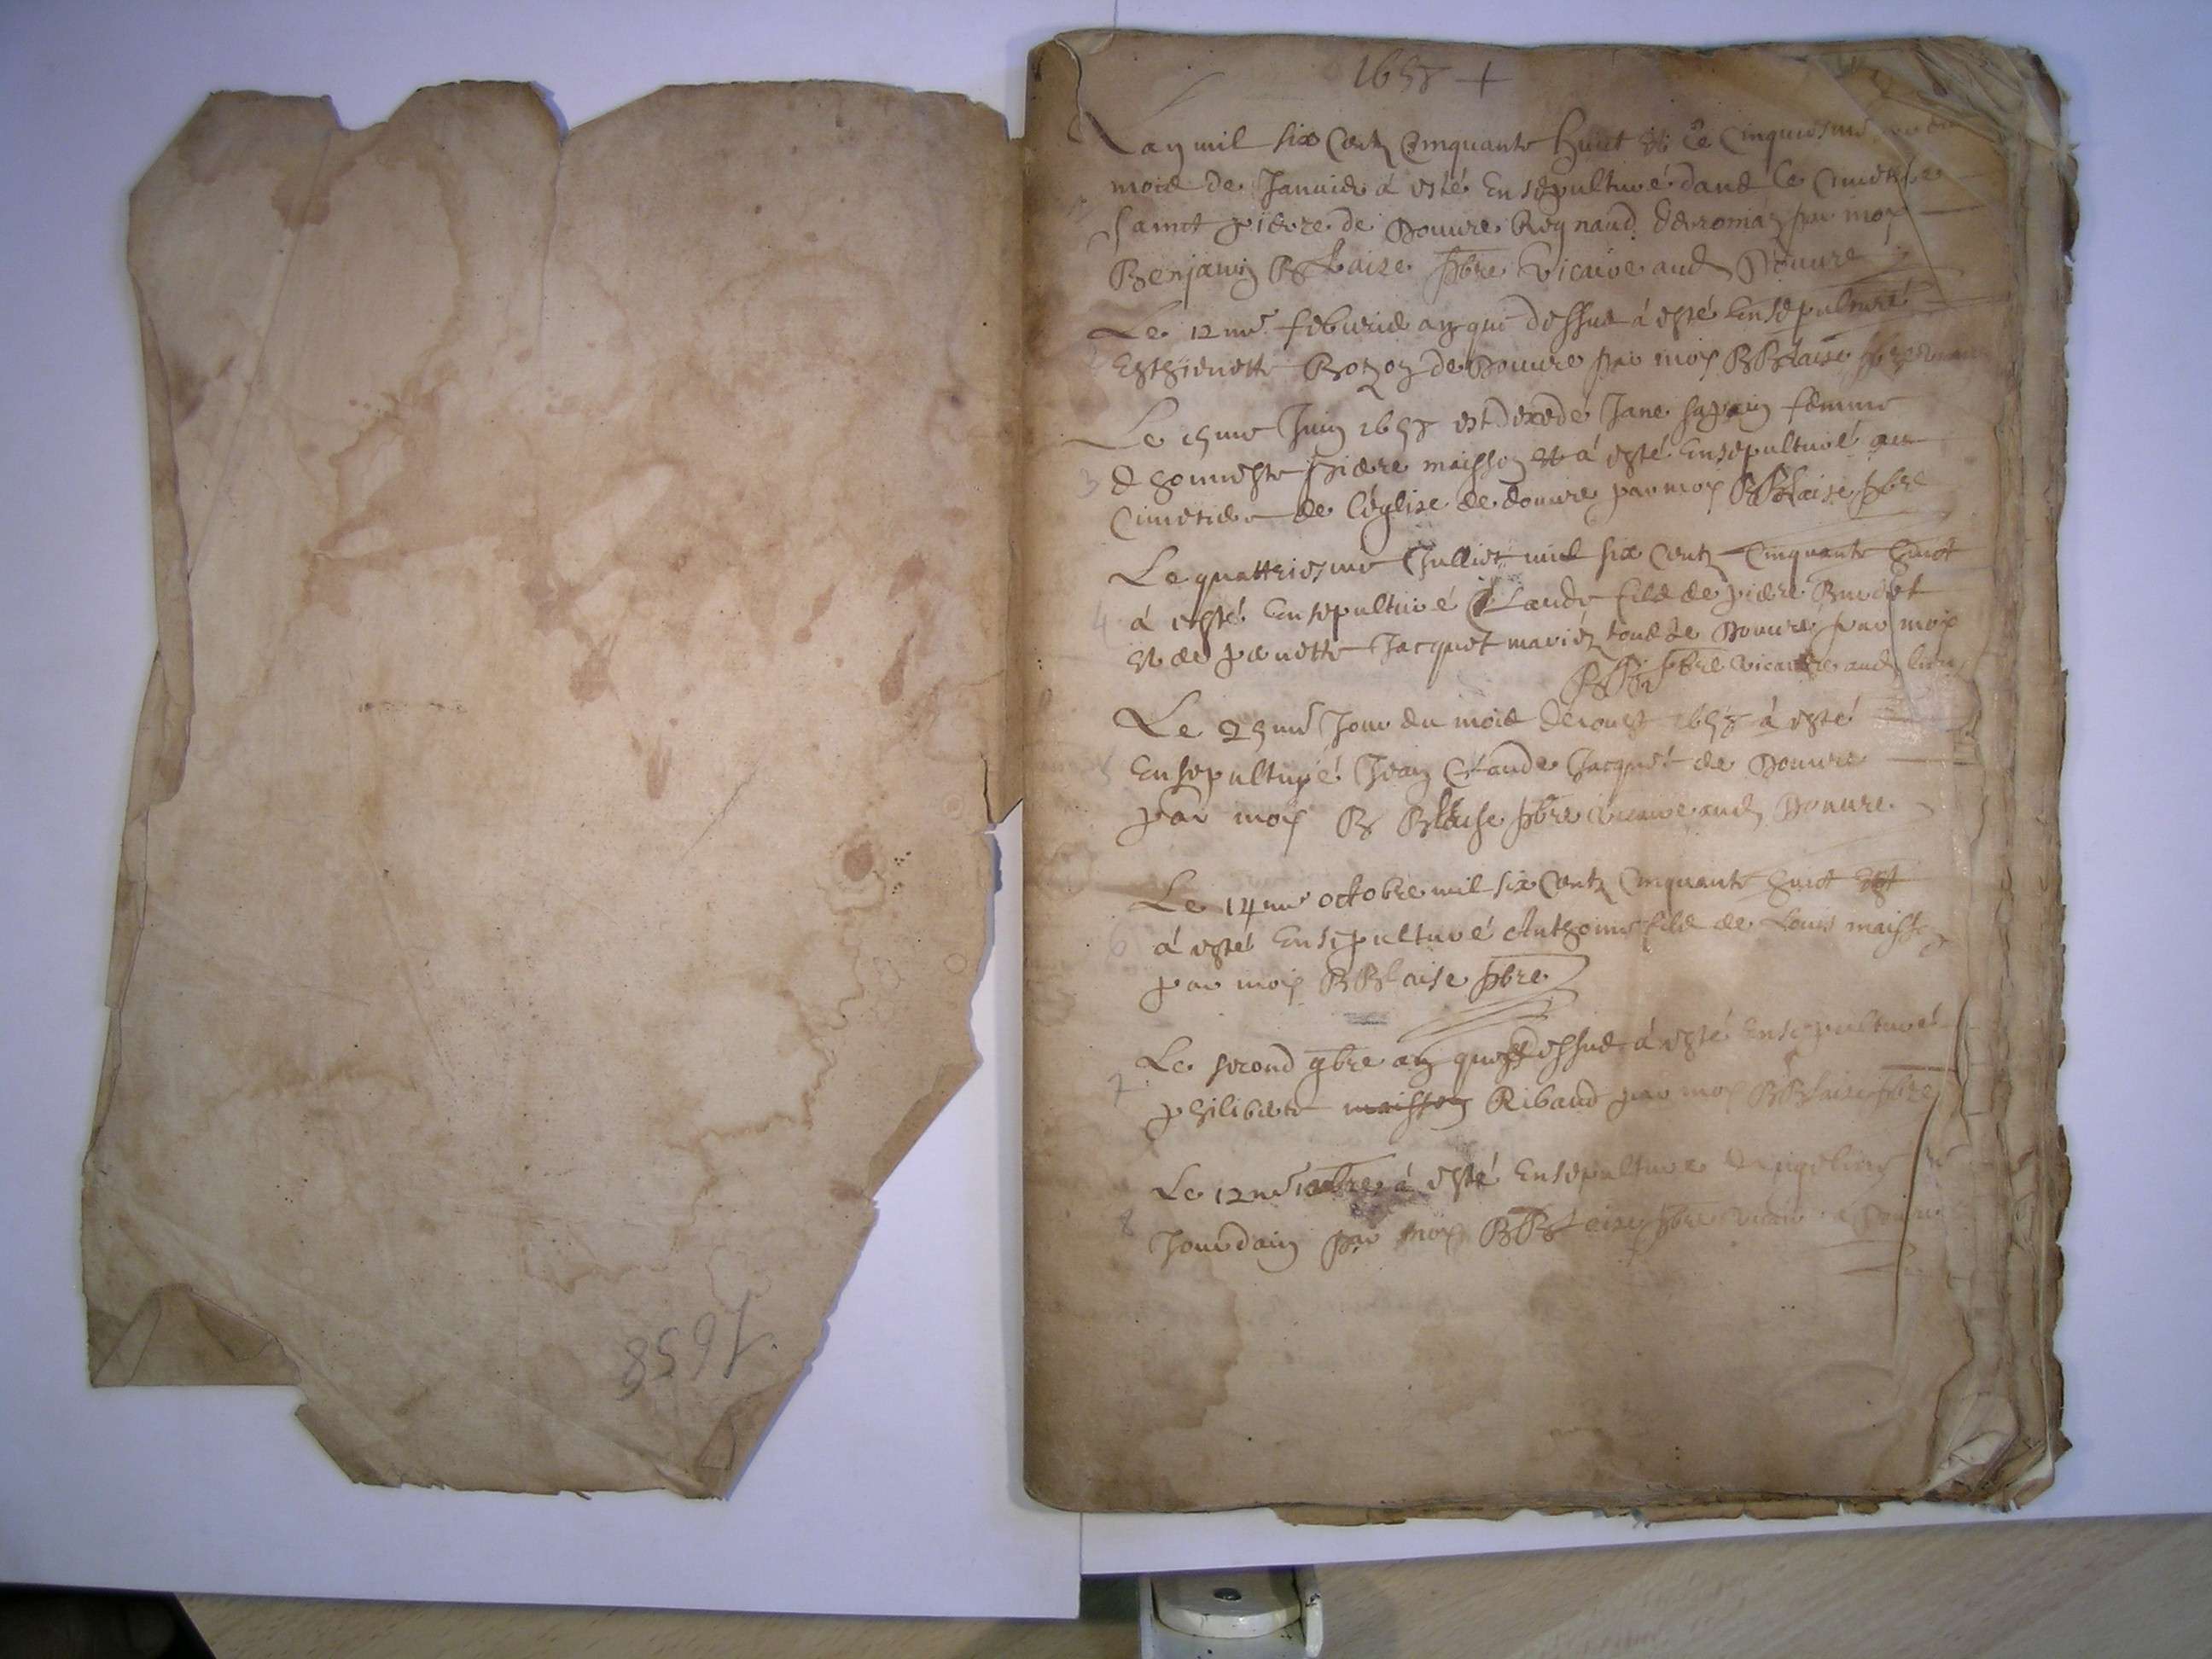 1658
1658 +
Lan mil six Centz Cinquante huict et le Cinquiesme
mois de Januier à esté Ensepulturé dans le Cimetiere
sainct pierre de Douure Reynaud par moy
Benjamin Blaise pbre vicaire aud Douure
Le 12me feburier an que dessus à esté Ensepulturé
Esthienette Bozon de Douure par moy B Blaise pbre
Le 15me Juin 1658 est decedé Jane femme
3 d honneste pierre maisson et à esté Ensepulturé au
Cimetiere de l'église de douure par moy B Blaise pbre
Le quattriesme Julliet mil six Centz Cinquante huict
4 à esté Ensepulturé Claude fils de pierre Burdet
et de pernette Jacquet mariéz tous de Douure par moy
pbre vicaire aud lieu
Le 25me Jour du mois 1658 à esté
5 Ensepulturé Jean Claude Jacquet de Douure
par moy B Blaise pbre vicaire aud Douure
Le 14me octobre mil six Centz Cinquante huict
6 à esté Ensepulturé Anthoine fils de Louis maisson
par moy B Blaise pbre
Le second 9bre an que dessus à esté Ensepulturé
7 philiberte maisson Ribaud par moy B Blaise pbre
Le 12me à esté Ensepulturé
8 Jourdain par moy B Blaise pbre